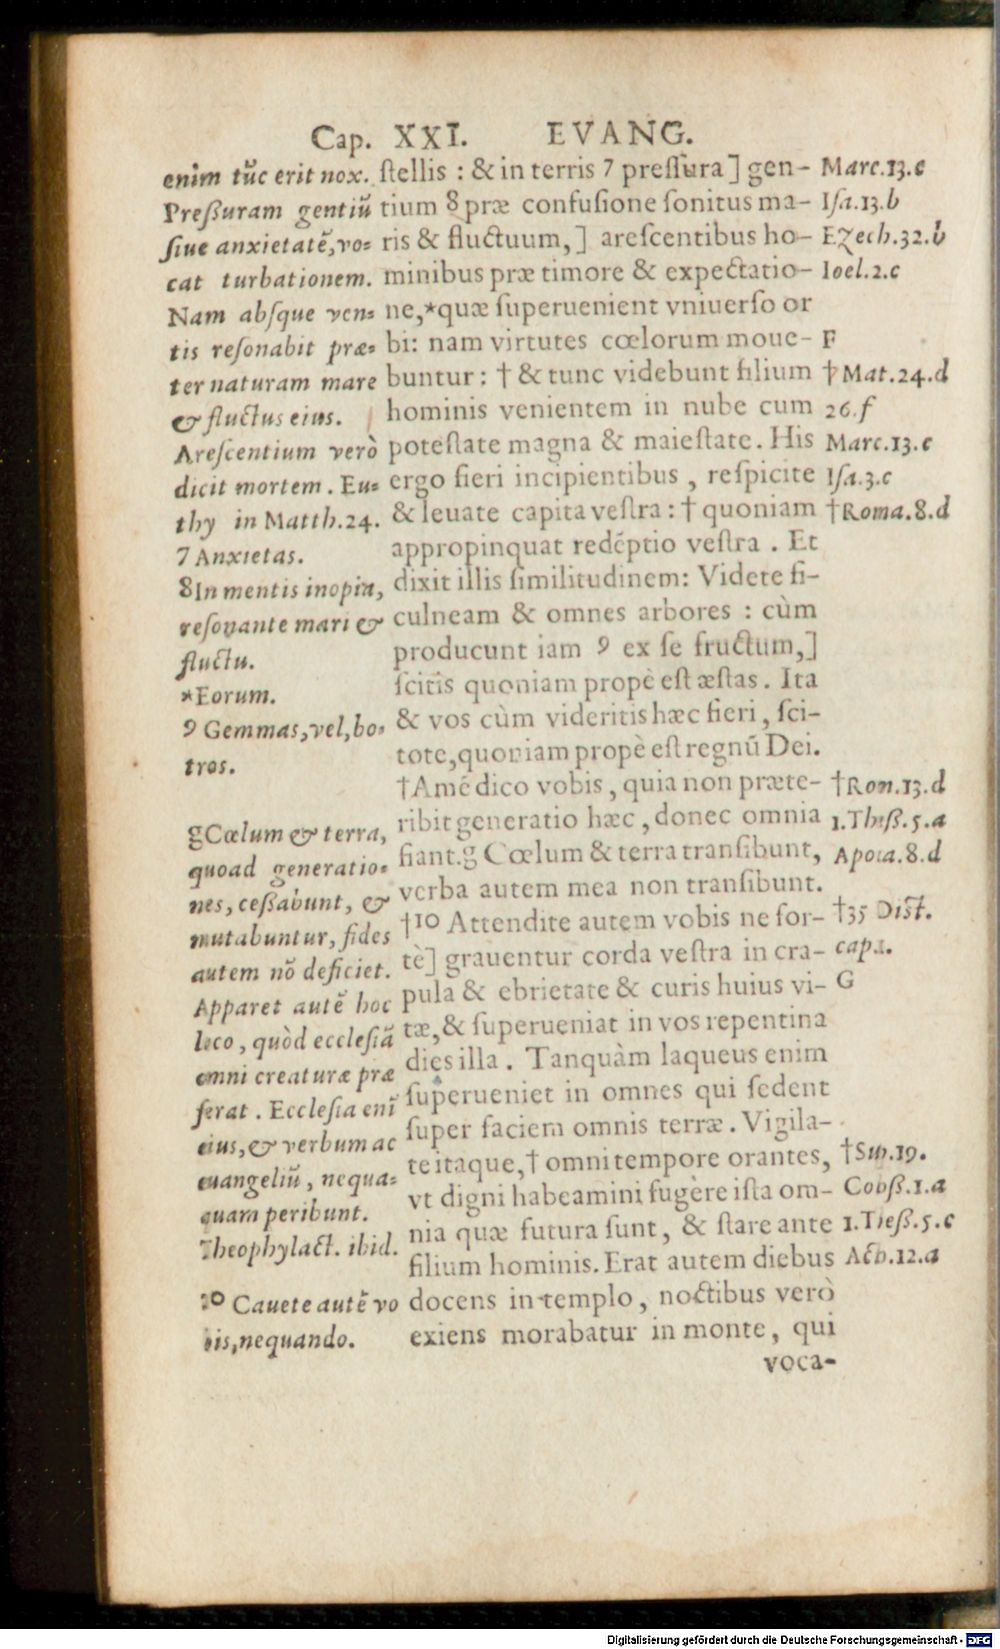 Cap. XXI. EVANG.
enim tũc erit nox.
Preßuram gentiũ
ſiue anxietatẽ, vo-
cat turbationem.
Nam abſque ven-
tis reſonabit præ-
ter naturam mare
& fluctus eius.
Areſcentium verò
dicit mortem. Eu-
thy in Matth.24.
7 Anxietas.
8 In mentis inopia,
reſonante mari &
fluctu.
*Eorum.
9 Gemmas, vel, bo-
tros.
g Cœlum & terra,
quoad generatio-
nes, ceßabunt, &
mutabuntur, fides
autem nõ deficiet.
Apparet autẽ hoc
loco, quòd eccleſiã
omni creaturæ præ
ferat. Eccleſia enĩ
eius, & verbum ac
euangeliũ, nequa-
quam peribunt.
Theophylact. ibid.
10 Cauete autẽ vo
bis, nequando.
ſtellis : & in terris 7 preſſura ] gen-
tium 8 præ confuſione ſonitus ma-
ris & fluctuum, ] areſcentibus ho-
minibus præ timore & expectatio-
ne, *quæ ſuperuenient vniuerſo or
bi: nam virtutes cœlorum moue-
buntur : † & tunc videbunt filium
hominis venientem in nube cum
poteſtate magna & maieſtate. His
ergo fieri incipientibus, reſpicite
& leuate capita veſtra : † quoniam
appropinquat redẽptio veſtra. Et
dixit illis ſimilitudinem: Videte fi-
culneam & omnes arbores : cùm
producunt iam 9 ex ſe fructum, ]
ſcitis quoniam propè eſt æſtas. Ita
& vos cùm videritis hæc fieri, ſci-
tote, quoniam propè eſt regnũ Dei.
†Amẽ dico vobis, quia non præte-
ribit generatio hæc, donec omnia
fiant. g Cœlum & terra tranſibunt,
verba autem mea non tranſibunt.
†10 Attendite autem vobis ne for-
tè] grauentur corda veſtra in cra-
pula & ebrietate & curis huius vi-
tæ, & ſuperueniat in vos repentina
dies illa. Tanquàm laqueus enim
ſuperueniet in omnes qui ſedent
ſuper faciem omnis terræ. Vigila-
te itaque, † omni tempore orantes,
vt digni habeamini fugère iſta om-
nia quæ futura ſunt, & ſtare ante
filium hominis. Erat autem diebus
docens in templo, noctibus verò
exiens morabatur in monte, qui
voca-
Marc.13.c
Iſa.13.b
Ezech.32.b
Ioel.2.c
F
†Mat.24.d
26.f
Marc.13.c
Iſa.3.c
†Roma.8.d
†Rom.13.d
1.Theß.5.a
Apoca.8.d
†35 Diſt.
cap.1.
G
†Sup.19.
Coloß.1.a
1.Theß.5.c
Act.12.a
Digitalisierung gefördert durch die Deutsche Forschungsgemeinschaft - DFG